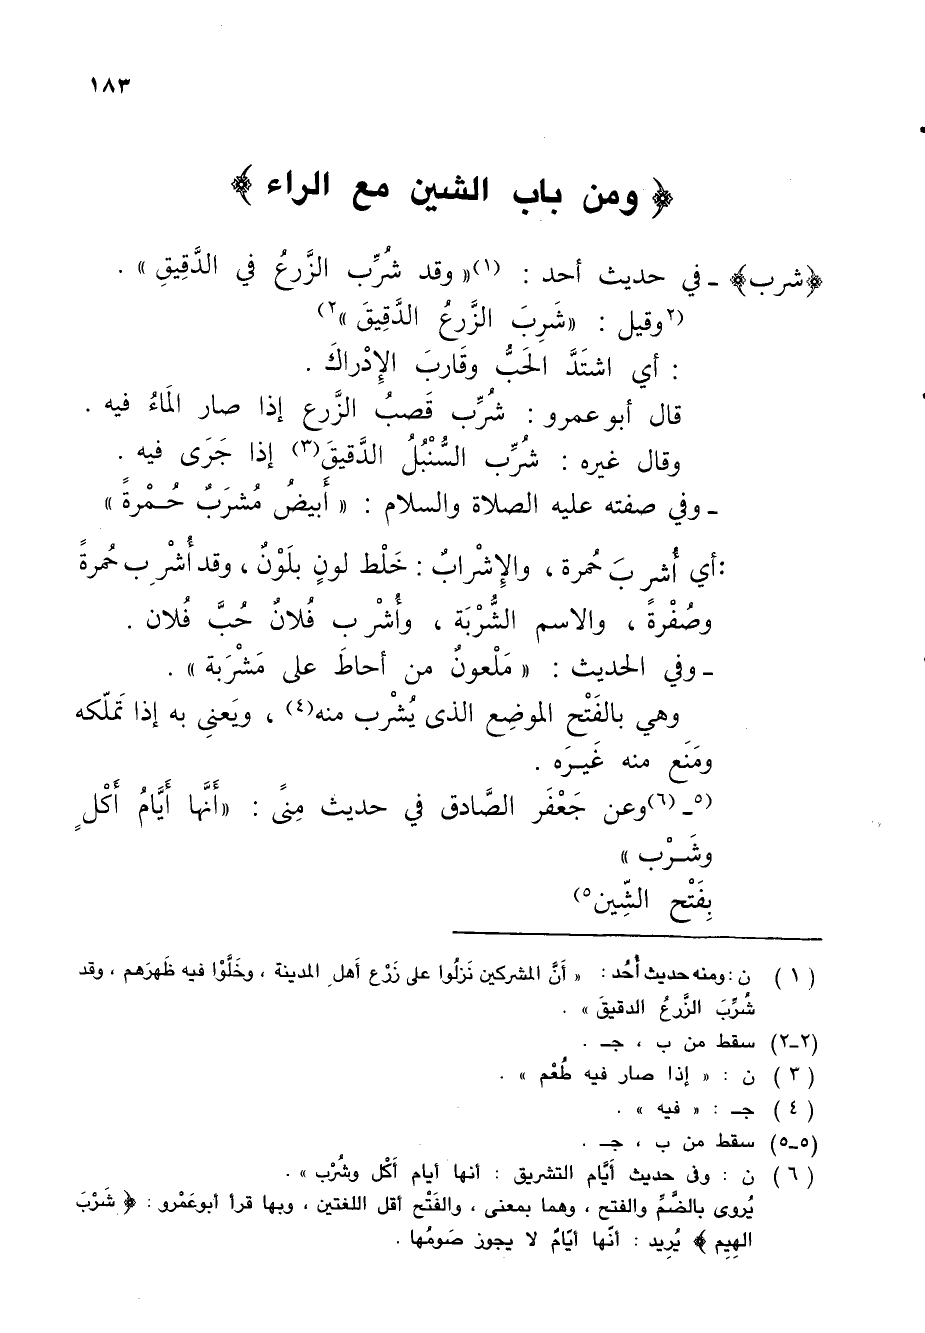 ١٨٣
﴿ ومن باب الشين مع الراء ﴾
﴿شرب﴾ ـ في حديث أحد : (١)« وقد شُرِّب الزَّرعُ في الدَّقِيقِ » .
(٢وقيل : «شَرِبَ الزَّرعُ الدَّقِيقَ »٢)
: أي اشتَدَّ الحَبُّ وقَاربَ الإِدْراكَ .
قال أبو عمرو : شُرِّب قَصبُ الزَّرع إذا صار المَاءُ فيه .
وقال غيره : شُرِّب السُّنْبُلُ الدَّقيقَ(٣) إذا جَرَى فيه .
ـ وفي صفته عليه الصلاة والسلام : « أَبيضُ مُشرَبٌ حُـمْرةً »
:أي أُشرِبَ حُمرة ، والإِشْرابُ : خَلْط لونٍ بلَوْنٌ ، وقد أُشْرِب حُمرةً
وصُفْرةً ، والاسم الشُّرْبَة ، وأُشْرِب فُلانٌ حُبَّ فُلان .
ـ وفي الحديث : « مَلْعونٌ من أحاطَ على مَشْرَبة » .
وهي بالفَتْح الموضِع الذى يُشْرب منه(٤) ، ويَعنِي به إذا تَملّكه
ومَنَع منه غَيـرَه .
(٥ـ (٦)وعن جَعْفَر الصَّادق في حديث مِنىً : «أَنَّها أَيَّامُ أَكْلٍ
وشَـرْب »
بِفَتْح الشِّين٥)
(١) ن : ومنه حديث أُحُد : « أَنَّ المشركين نَزلُوا على زَرْع أهلِ المدينة ، وخَلَّوْا فيه ظَهرَهم ، وقد
شُرِّبَ الزَّرعُ الدقيقَ » .
(٢ـ٢) سقط من ب ، جـ .
(٣) ن : « إذا صار فيه طُعْم » .
(٤) جـ : « فيه » .
(٥ـ٥) سقط من ب ، جـ .
(٦) ن : وفى حديث أيَّام التشريق : أنها أيام أكْل وشُرْب » .
يُروى بالضَّمِّ والفتح ، وهما بمعنى ، والفَتْح أقل اللغتين ، وبها قرأ أبوعَمْرو : ﴿ شَرْبَ
الهِيمِ ﴾ يُرِيد : أنّها أيّامٌ لا يجوز صَومُها .